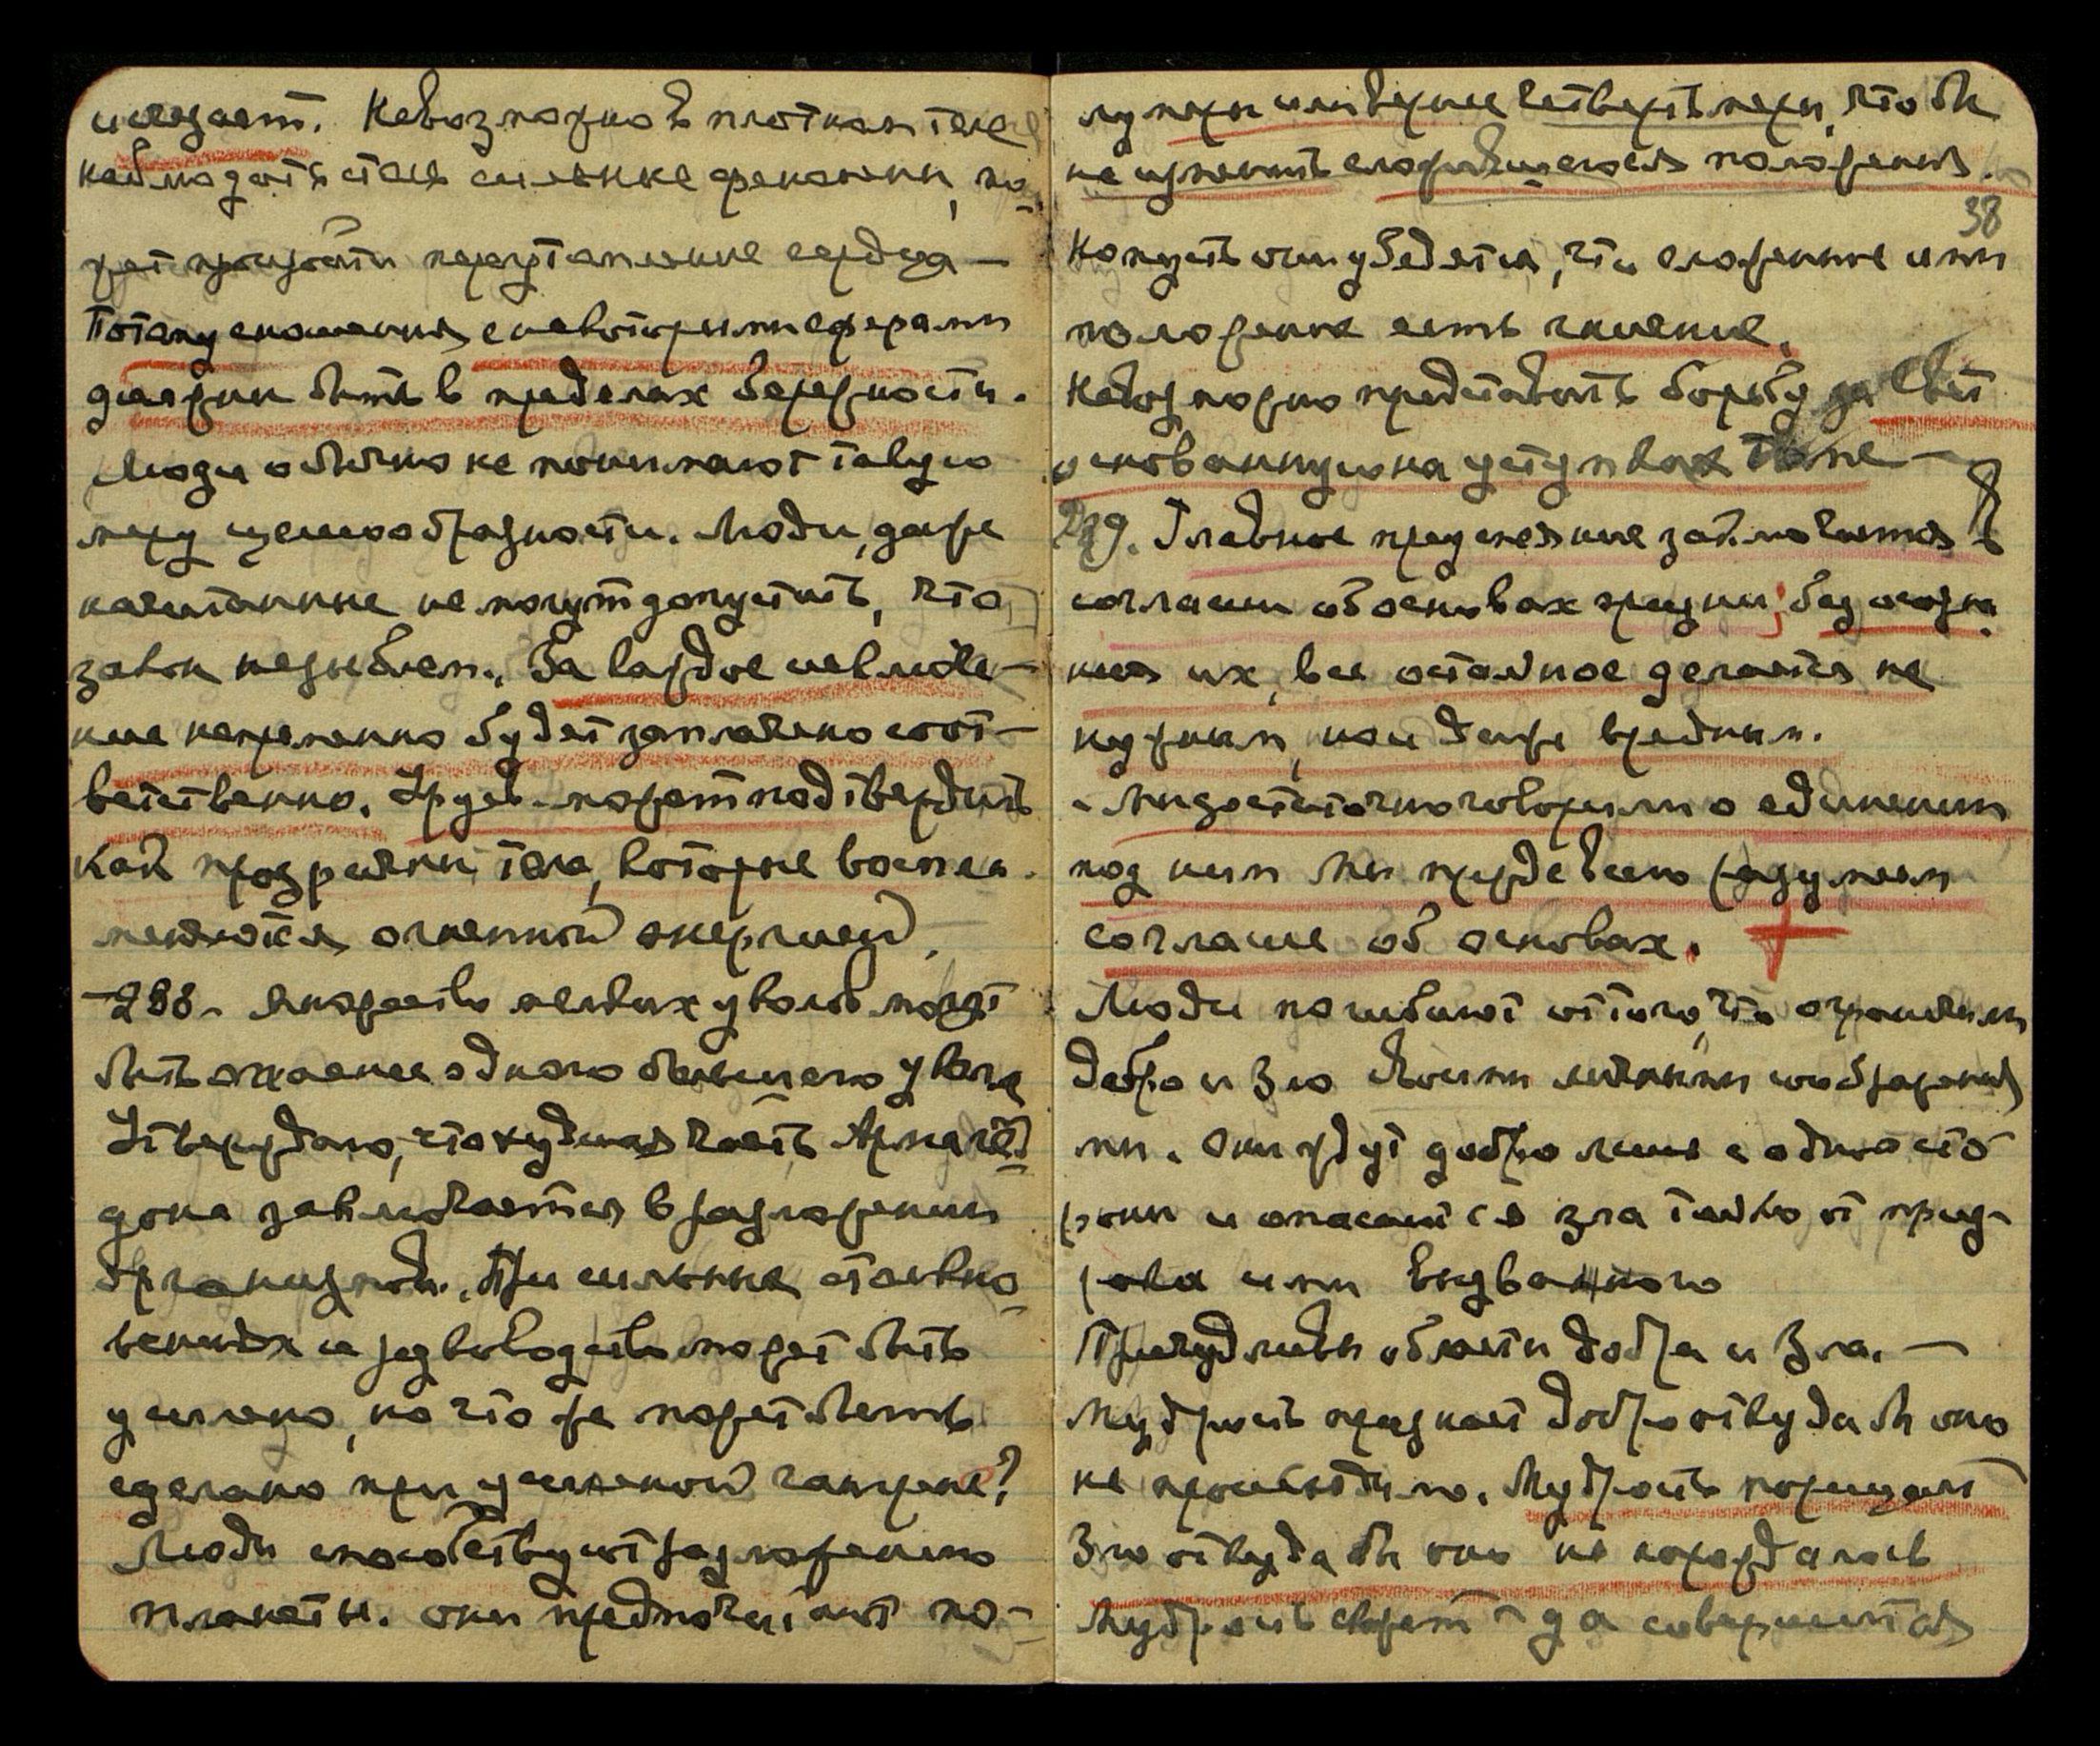 исчезает. Невозможно в плотном теле
наблюдать столь сильные феномены, мо-
жет произойти перенапряжение сердца —
Потому сношения с некоторыми сферами
должны быть в пределах бережности.
Люди обычно не понимают такую
меру целесообразности. Люди, даже
начитанные не могут допустить, что
закон незыблем. За каждое исключе-
ние непременно будет заплачено соот-
ветственно. Урусв. может подтвердить
как призрачны тела, которые воспла-
меняются огненной энергией,
— 288. Множество мелких уколов может
быть опаснее одного большого укола
Утверждаю, что худшая часть Армагед-
дона заключается в разложении
организмов. При сильных столкно-
вениях и руководство может быть
усилено, но что же может быть
сделано при усиленной гангрене?
Люди способствуют разложению
планеты. они предпочитают по-
лумеры или вернее четверть меры, что бы
не изменить сложившегося положения.
38
Но пусть они убедятся, что сложенное ими
положение есть гниение.
Невозможно представить борьбу за Свет
основанную на уступках тьме —
289. Главное преуспеяние заключается в
согласии об основах жизни; без осозна
ния их, все остальное делается не
нужным, или даже вредным.
— Мы достаточно говорили о единении
под ним Мы прежде всего разумеем
согласие об основах.
Люди погибают от того, что ограничили
добро и Зло своими личными соображения
ми. Они ждут добро лишь с одной сто
роны и опасаются зла только от приз-
рака ими вызванного
Причудливы области добра и Зла. —
Мудрость признает добро откуда бы оно
не происходило. Мудрость порицает
Зло откуда бы оно не порождалось
Мудрость скажет — да совершится